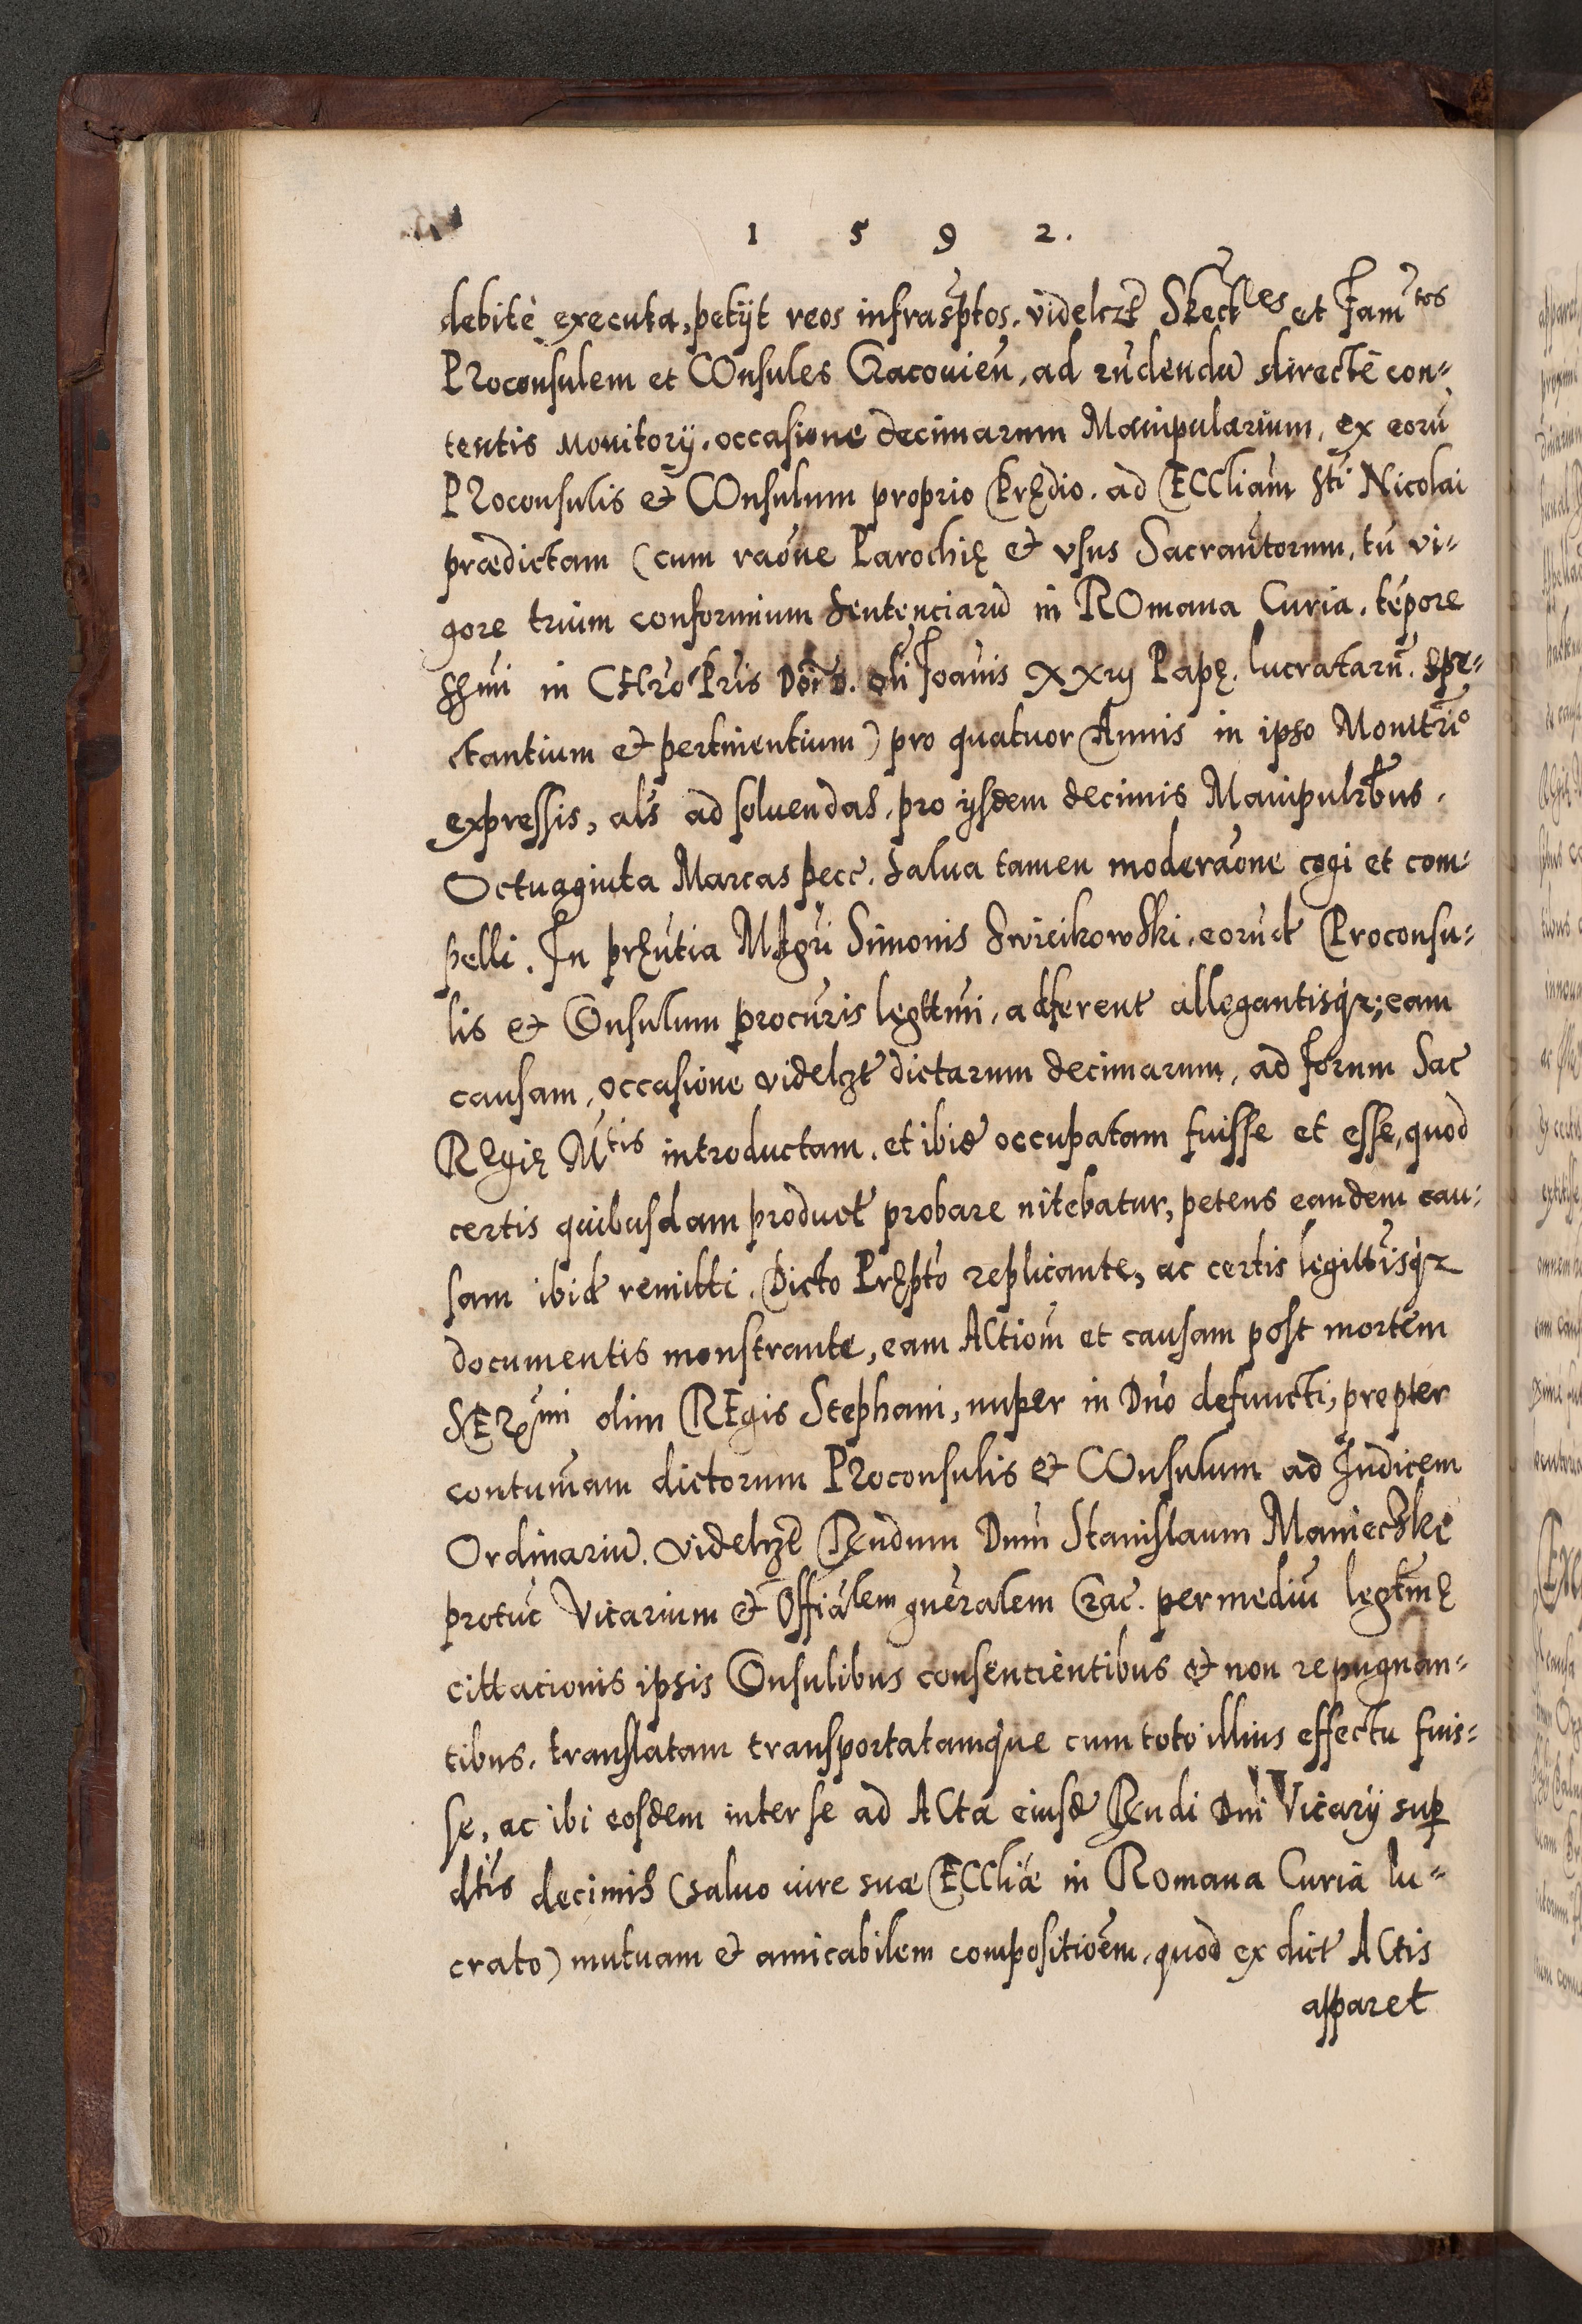 1592.
debitè executa, petÿt reos infrasp̃tos. videlczt̃ Spect̃les et Fam̃tos
PRoconsulem et COnsules Cracouieñ, ad rñdendũ directè con-
tentis Monitorÿ. occasione decimarum Manipularium, ex eorũ
PRoconsulis et COnsulum proprio Prędio. ad ECCliam̃ Sti Nicolai
prædictam (cum raõne Parochię et vsus Sacramẽtorum, tũ vi-
gore trium conformium Sententiarũ in ROmana Curia. tẽpore
ssmi in CHro Pris Doñi D. oli Joañis XXIIJ Papę. lucratarũ. spe-
ctantium et pertinentium) pro quatuor Annis in ipso Monitrio
expressis, als̃ ad soluendas. pro ÿsdem decimis Manipulrbus.
Octuaginta Marcas pecc. Salua tamen moderaõne cogi et com-
pelli. In pręñtia MAgri Simonis Swieikowski. eoruct̃ Proconsu-
lis et COnsulum procuris̃ legttmi, adferent̃ allegantisqz; eam
causam, occasione videlzt̃ dictarum decimarum, ad forum Sac̃
REgię Mtis introductam. et ibid̃ occupatam fuisse et esse, quod
certis quibusdam product̃ probare nitebatur, petens eandem cau-
sam ibid̃ remitti. Dicto Pręp̃to replicante, ac certis legittĩsqz
documentis monstrante, eam ACtiom̃ et causam post mortem
SERmi olim REgis Stephani, nuper in Dño defuncti, propter
contumam̃ dictorum PRoconsulis et COnsulum ad Judicem
Ordinariũ. videlczt̃ Rndum Dnm̃ Stanislaum Manieczki
protuc̃ Vicarium et Offiãlem gnẽralem Crac̃. per mediũ legtmę
cittacionis ipsis COnsulibus consencientibus et non repugnan-
tibus. translatam transportatamque cum toto illius effectu fuis-
se, ac ibi eosdem inter se ad ACta eiusd̃ Rndi Dni Vicarÿ sup̲
dtis̃ decimis (saluo iure suæ ECCliæ in Romana Curia lu-
crato) mutuam et amicabilem compositioẽm, quod ex dict̃ ACtis
apparet